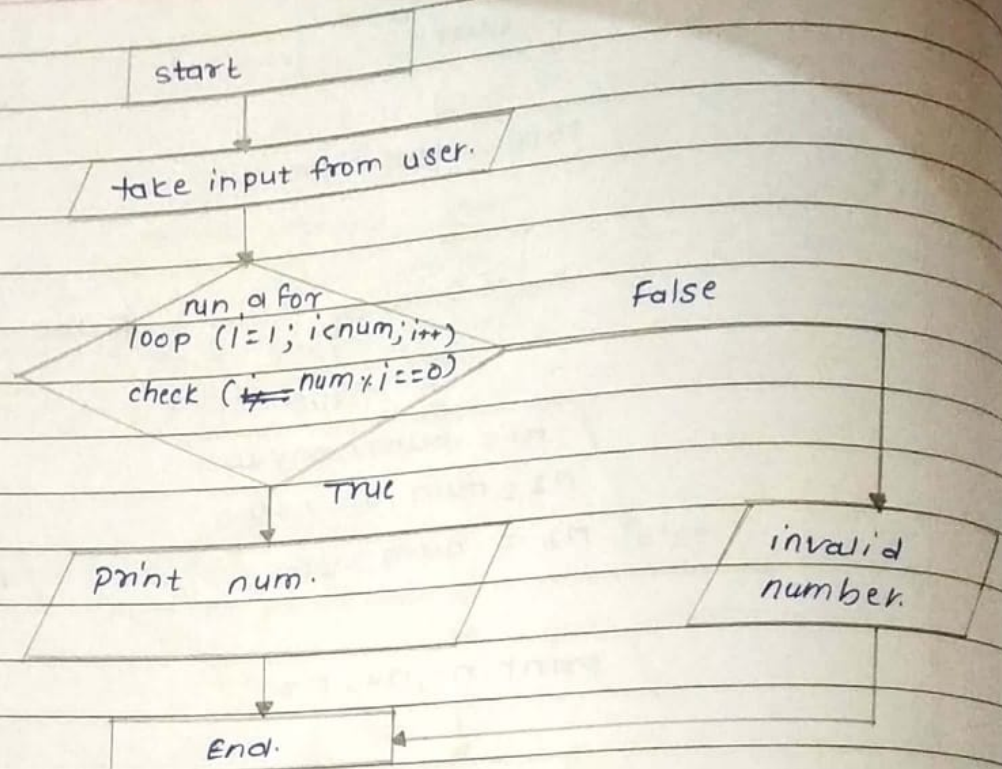 start
take input from user.
False
run a for
loop (I=1; i<num; i++)
check (num % i==0)
True
print num.
invalid
number.
End.